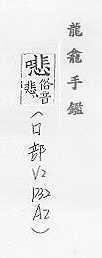 龍龕手鑑
俗音
悲
(口部
V2
P32
A2)